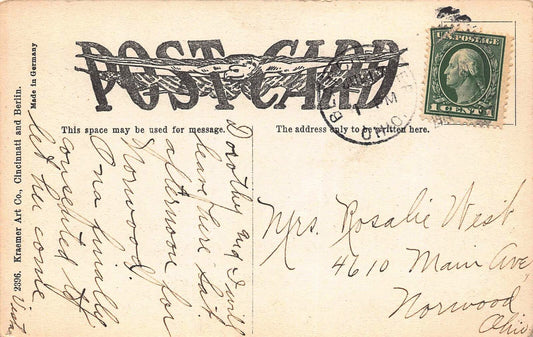 POST CARD
This space may be used for message.
The address only to be written here.
U.S. POSTAGE
1 CENT 1
PM
OHIO
Dorothy and I will
leave here Sat
afternoon for
Norwood.
Ona finally
consented to
let her come
Mrs. Rosalie West
4610 Main Ave
Norwood
Ohio
2396. Kraemer Art Co., Cincinnati and Berlin. Made in Germany